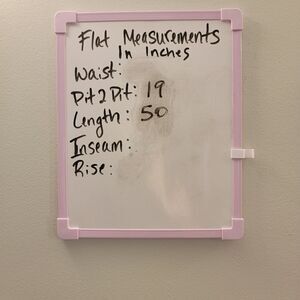 Flat Measurements
In Inches
Waist:
Pit2Pit: 19
Length: 50
Inseam:
Rise: